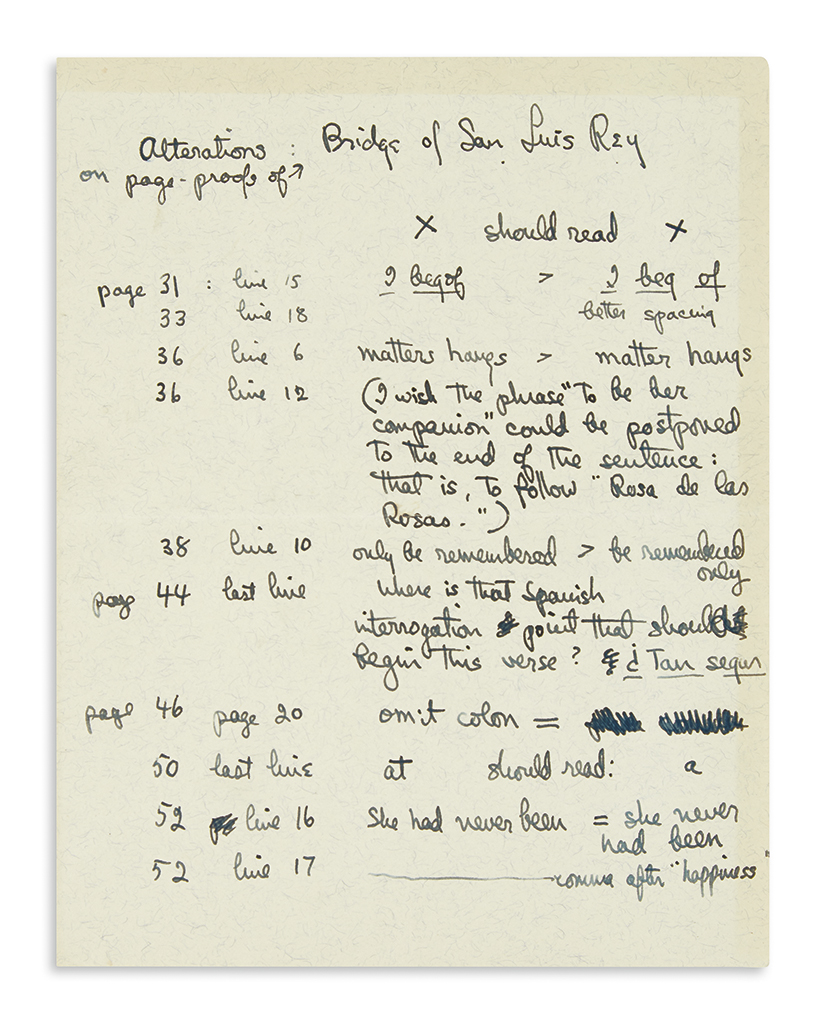 Alterations : Bridge of San Luis Rey
on page-proofs of
× should read ×
page 31 : line 15 I begof > I beg of
33 line 18 better spacing
36 line 6 matters hangs > matter hangs
36 line 12 (I wish the phrase "To be her
companion" could be postponed
to the end of the sentence:
that is, to follow "Rosa de las
Rosas.")
38 line 10 only be remembered > be remembered
only
page 44 last line where is that Spanish
interrogation point that should
begin this verse? ¿ Tan segun
page 46 page 20 omit colon =
50 last line at should read: a
52 line 16 She had never been = she never
had been
52 line 17 comma after "happiness"